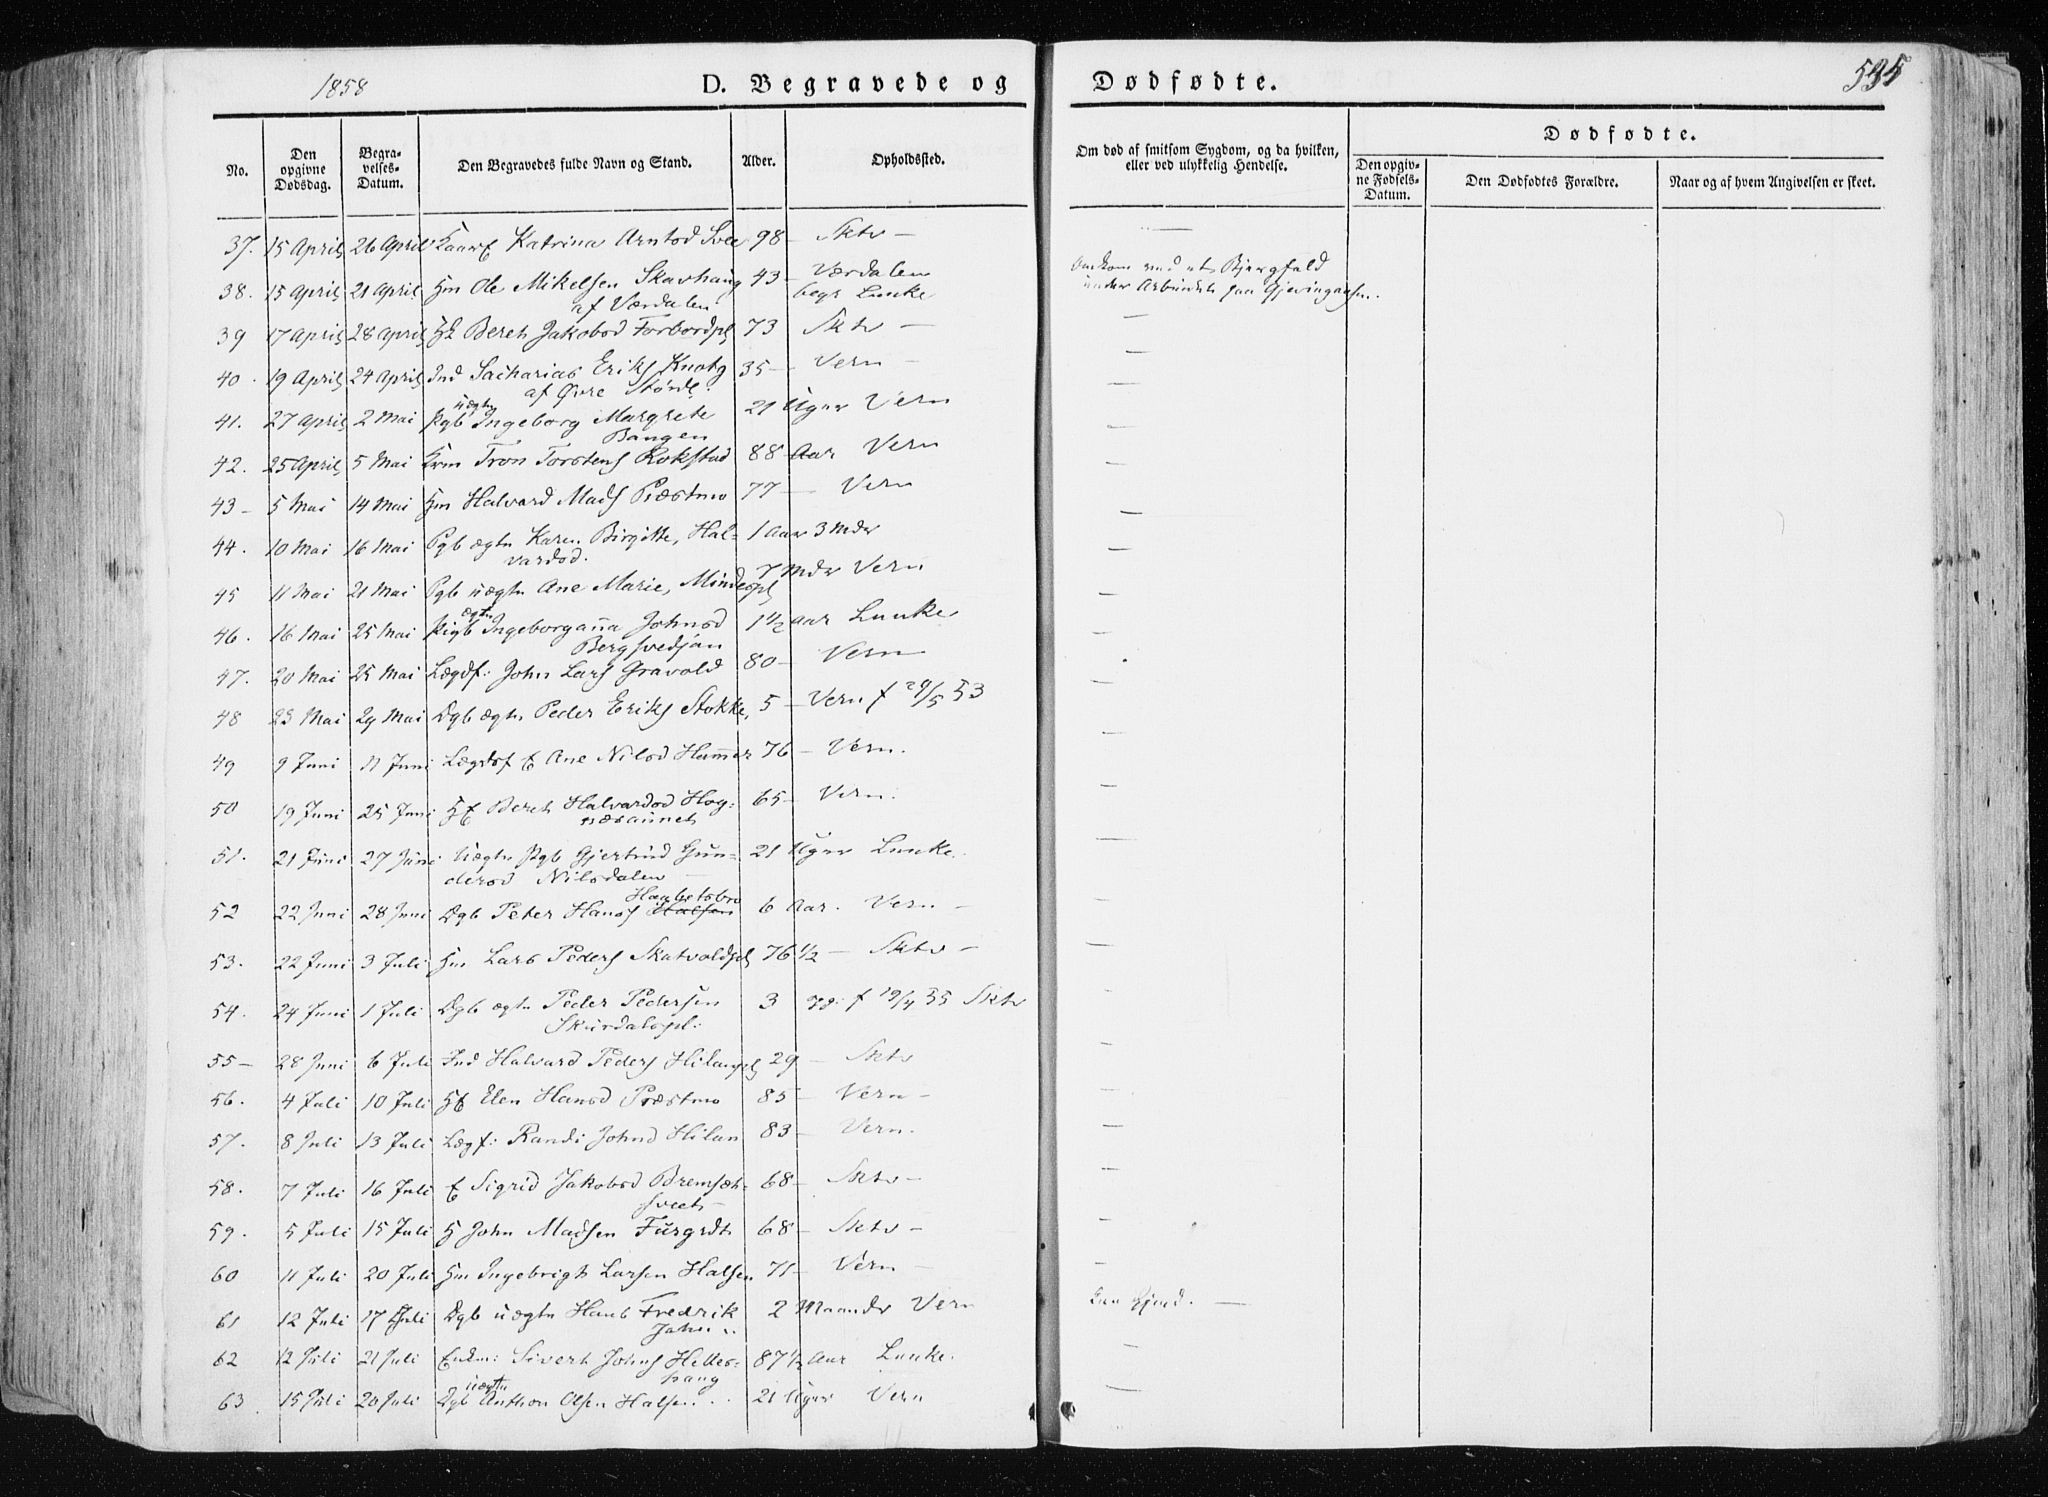 1858 D. Begravede og Dødfødte. 535
No. Den opgivne Dødsdag. Begravelses-Datum. Den Begravedes fulde Navn og Stand. Alder. Opholdssted. Om død af smitsom Sygdom, og da hvilken, eller ved ulykkelig Hendelse. Dødfødte. Den opgivne Fødsels-Datum. Den Dødfødtes Forældre. Naar og af hvem Angivelsen er skeet.
37. 15 April 26 April Katrina Arntsd Svee 98 – Sktv –
38. 15 April 21 April Gm Ole Mikelsen Skavhaug 43 – Værdalen
af Værdalen begr Luuke
Omkom ved et Bjergfald
under Arbeidet paa Gjevingaasen.
39 17 April 28 April Beret Jakobsd Forbordpl 73 Sktv –
40. 19 April 24 April Ind Sacharias Eriks Knotg 35 – Vern –
af Øvre Størd.
41. 27 April 2 Mai Pgb uægte Ingeborg Margrete 21 Uger Vern
Bangen
42. 25 April 5 Mai Tron Torstens Rokstad 88 – Aar Vern
43 – 5 Mai 14 Mai Gm Halvard Mads Præstmo 77 – Vern
44. 10 Mai 16 Mai Pgb ægte Karen Birgitte, Hal- 1 Aar 3 Mdr
vardsd.
45 11 Mai 21 Mai Pgb uægte Ane Marie, Mindespl 7 Mdr Vern
46. 16 Mai 25 Mai Pigb ægte Ingeborganna Johnsd 1 1/2 Aar Luuke
Bergsvedjan
47. 20 Mai 25 Mai Lægdf: John Lars Gravold 80 – Vern
48 23 Mai 29 Mai Dgb ægte Peder Eriks Stokke, 5 – Vern f 29/5 53
49 9 Juni 11 Juni Lægdsf E Ane Nilsd Hammer 76 – Vern.
50 19 Juni 25 Juni GE Beret Halvardsd Hog- 65 – Vern.
næsaunet
51. 21 Juni 27 Juni Uægte Pgb Gjertrud Gun- 21 Uger Luuke.
dersd Nilsdalen –
52 22 Juni 28 Juni Dgb Peter Hans Halsen Haabetsbro 6 Aar. Vern –
53. 22 Juni 3 Juli Gm Lars Peders Skatvoldpl 76 1/2 – Sktv –
54. 24 Juni 1 Juli Dgb ægte Peder Pedersen 3 f 19/4 55 Sktv
Skurdalspl:
55 – 28 Juni 6 Juli Ind Halvard Peders Hilanpl 29 – Sktv
56. 4 Juli 10 Juli GE Elen Hansd Præstmo 85 – Vern –
57. 8 Juli 13 Juli Lægf: Randi Johnsd Hilan 83 – Vern.
58. 7 Juli 16 Juli E Sigrid Jakobsd Bremsæt- 68 – Sktv –
sveet –
59. 5 Juli 15 Juli G John Madsen Furgrdt 68 – Sktv –
60 11 Juli 20 Juli Gm Ingebrigt Larsen Halsen 71 – Vern –
61 12 Juli 17 Juli Dgb uægte Hans Fredrik 2 Maander Vern
John
62 12 Juli 21 Juli Enkm: Sivert Johns Helles- 87 1/2 Aar Luuke.
haug
63. 15 Juli 20 Juli Dgb uægte Anthon Olsen Halsen 21 Uger Vern